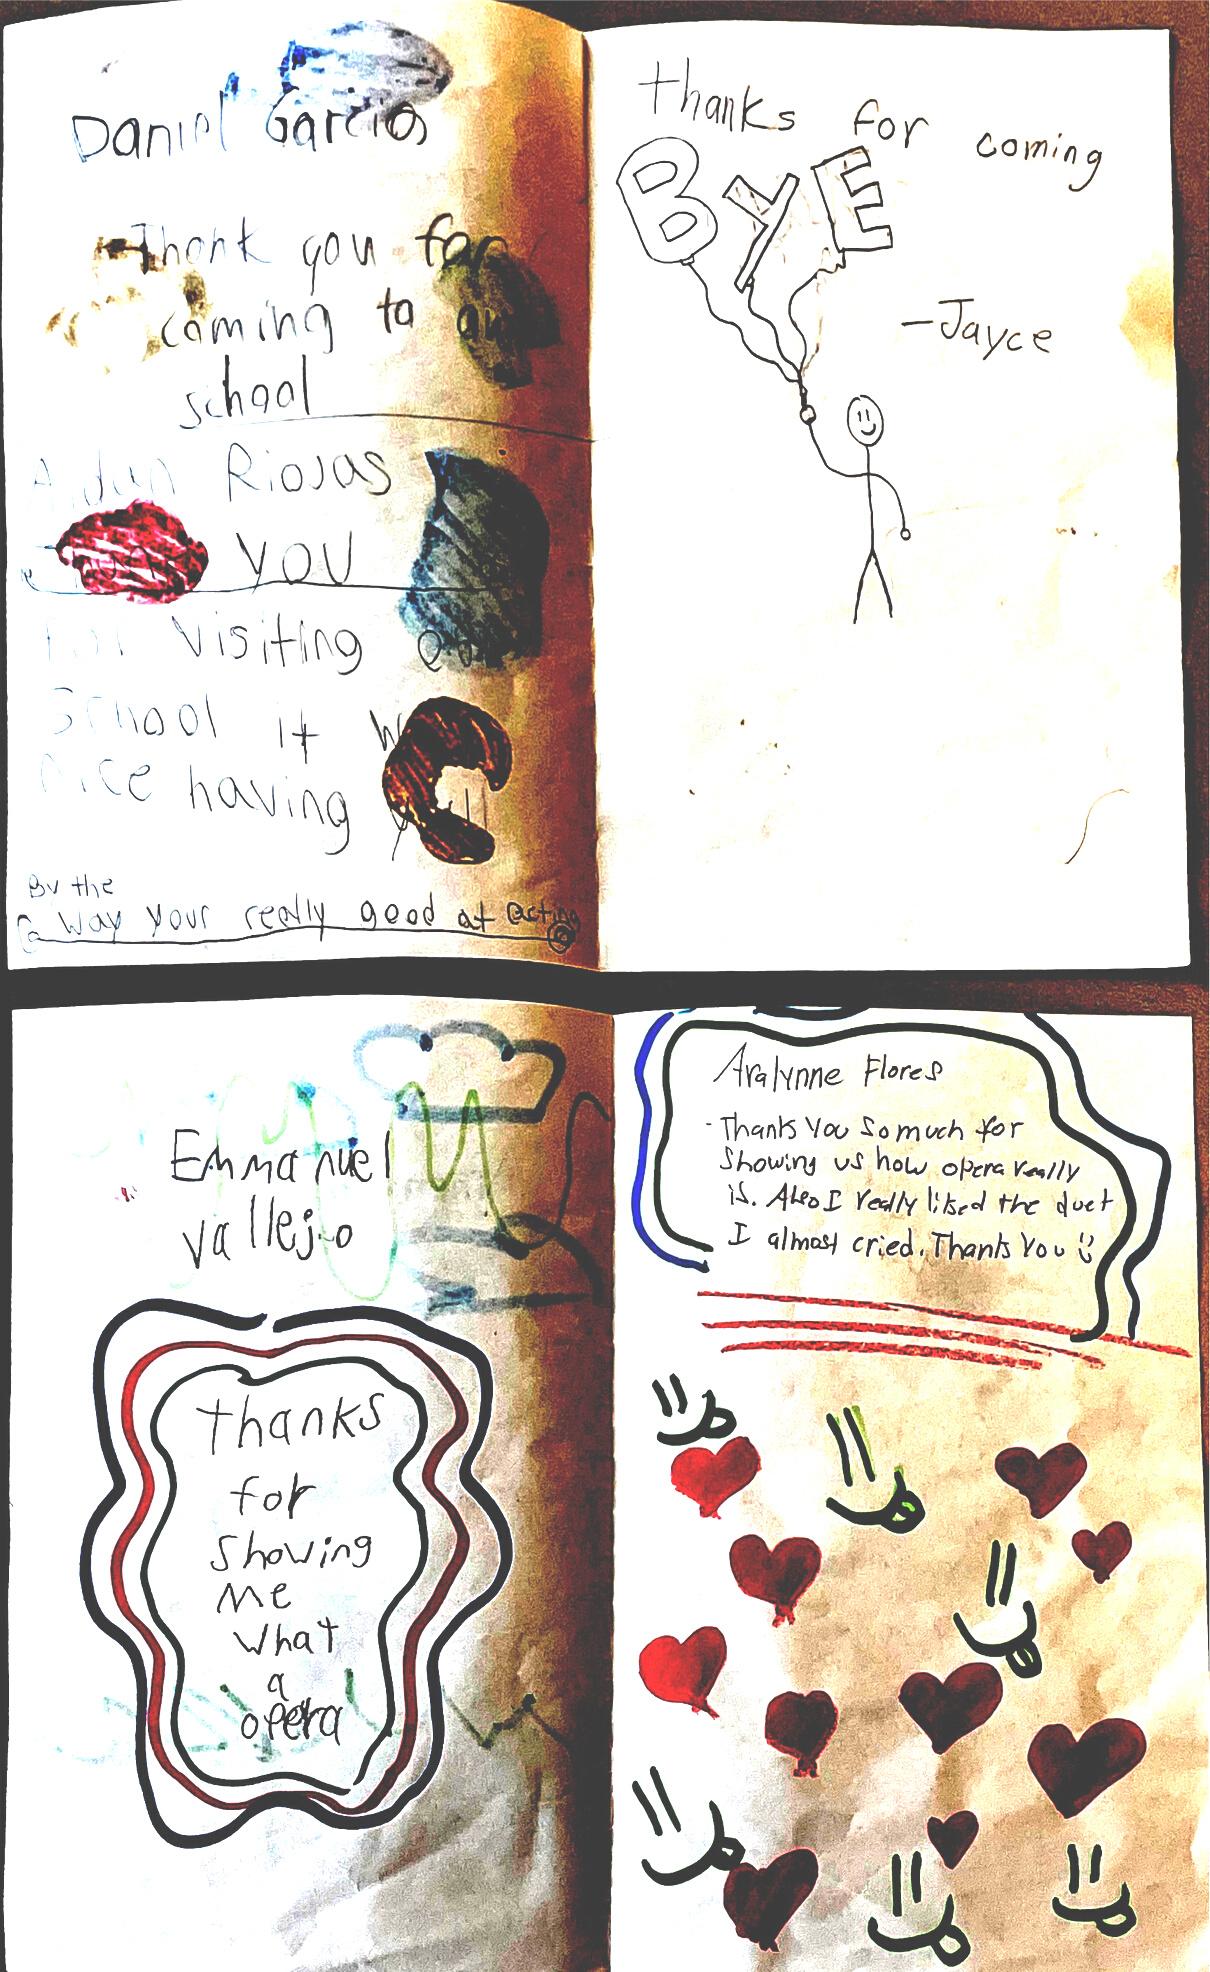 Daniel Garcia
Thank you for
coming to
school
Aidan Riojas
YOU
Visiting
School it
nice having
By the
Way your really good at acting
Thanks for coming
BYE
-Jayce
Emmanuel
Vallejo
thanks
for
showing
me
what
a
opera
Aralynne Flores
- Thanks You so much for
showing us how opera really
is. Also I really liked the duet
I almost cried. Thanks You